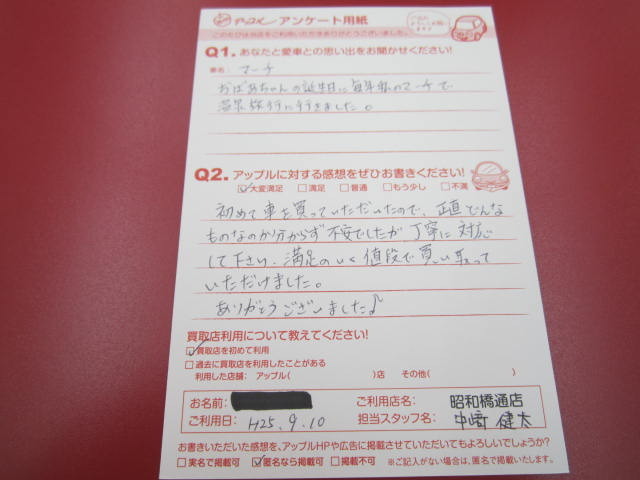 アップル アンケート用紙
このたびは当店をご利用いただきありがとうございました。
Q1. あなたと愛車との思い出をお聞かせください!
車名: マーチ
おばあちゃんの誕生日に毎年私のマーチで
温泉旅行に行きました。
Q2. アップルに対する感想をぜひお書きください!
☑大変満足 □満足 □普通 □もう少し □不満
初めて車を買っていただいたので、正直どんな
ものなのか分からず不安でしたが丁寧に対応
して下さい、満足のいく値段で買い取って
いただけました。
ありがとうございました♪
買取店利用について教えてください!
☑買取店を初めて利用
□過去に買取店を利用したことがある
利用した店舗: アップル( )店 その他( )
お名前: ご利用店名: 昭和橋通店
ご利用日: H25.9.10 担当スタッフ名: 中﨑 健太
お書きいただいた感想を、アップルHPや広告に掲載させていただいてもよろしいでしょうか?
□実名で掲載可 ☑匿名なら掲載可 □掲載不可 ※ご記入がない場合は、匿名で掲載いたします。